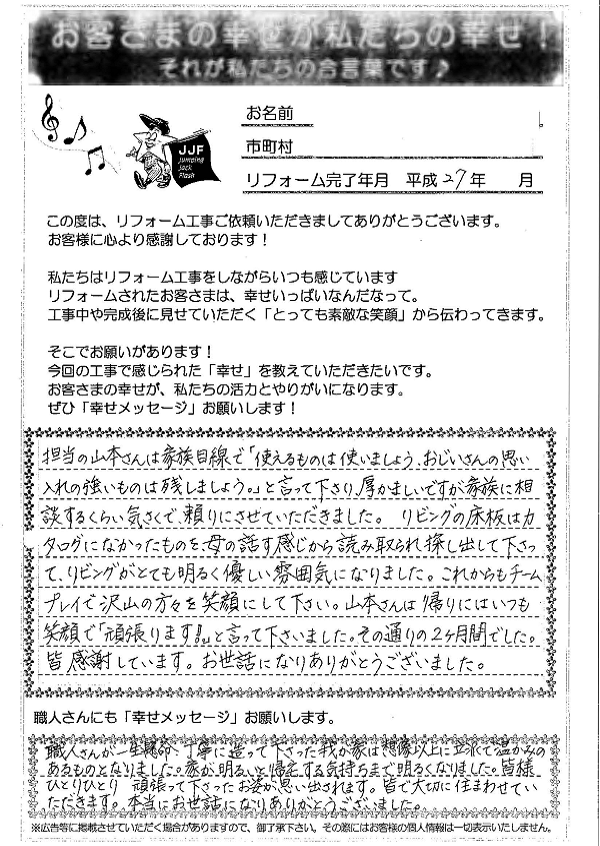 お客さまの幸せが私たちの幸せ！
それが私たちの合言葉です♪
お名前
JJF
Jumping
Jack
Flash
市町村
リフォーム完了年月　平成 27 年　　月
この度は、リフォーム工事ご依頼いただきましてありがとうございます。
お客様に心より感謝しております！
私たちはリフォーム工事をしながらいつも感じています
リフォームされたお客さまは、幸せいっぱいなんだなって。
工事中や完成後に見せていただく「とっても素敵な笑顔」から伝わってきます。
そこでお願いがあります！
今回の工事で感じられた「幸せ」を教えていただきたいです。
お客さまの幸せが、私たちの活力とやりがいになります。
ぜひ「幸せメッセージ」お願いします！
担当の山本さんは家族目線で「使えるものは使いましょう、おじいさんの思い
入れの強いものは残しましょう。」と言って下さり、厚かましいですが家族に相
談するくらい気さくで、頼りにさせていただきました。　リビングの床板はカ
タログになかったものを、母の話す感じから読み取られ探し出して下さっ
て、リビングがとても明るく優しい雰囲気になりました。これからもチーム
プレイで沢山の方々を笑顔にして下さい。山本さんは帰りにはいつも
笑顔で「頑張ります！！」と言って下さいました。その通りの2ヶ月間でした。
皆感謝しています。お世話になりありがとうございました。
職人さんにも「幸せメッセージ」お願いします。
職人さんが一生懸命、丁寧に造って下さった我が家は想像以上に立派で温かみの
あるものとなりました。家が明るいと帰宅する気持ちまで明るくなりました。皆様
ひとりひとり　頑張って下さったお姿が思い出されます。皆で大切に住まわせてい
ただきます。本当にお世話になりありがとうございました。
※広告等に掲載させていただく場合がありますので、御了承下さい。その際にはお客様の個人情報は一切表示いたしません。